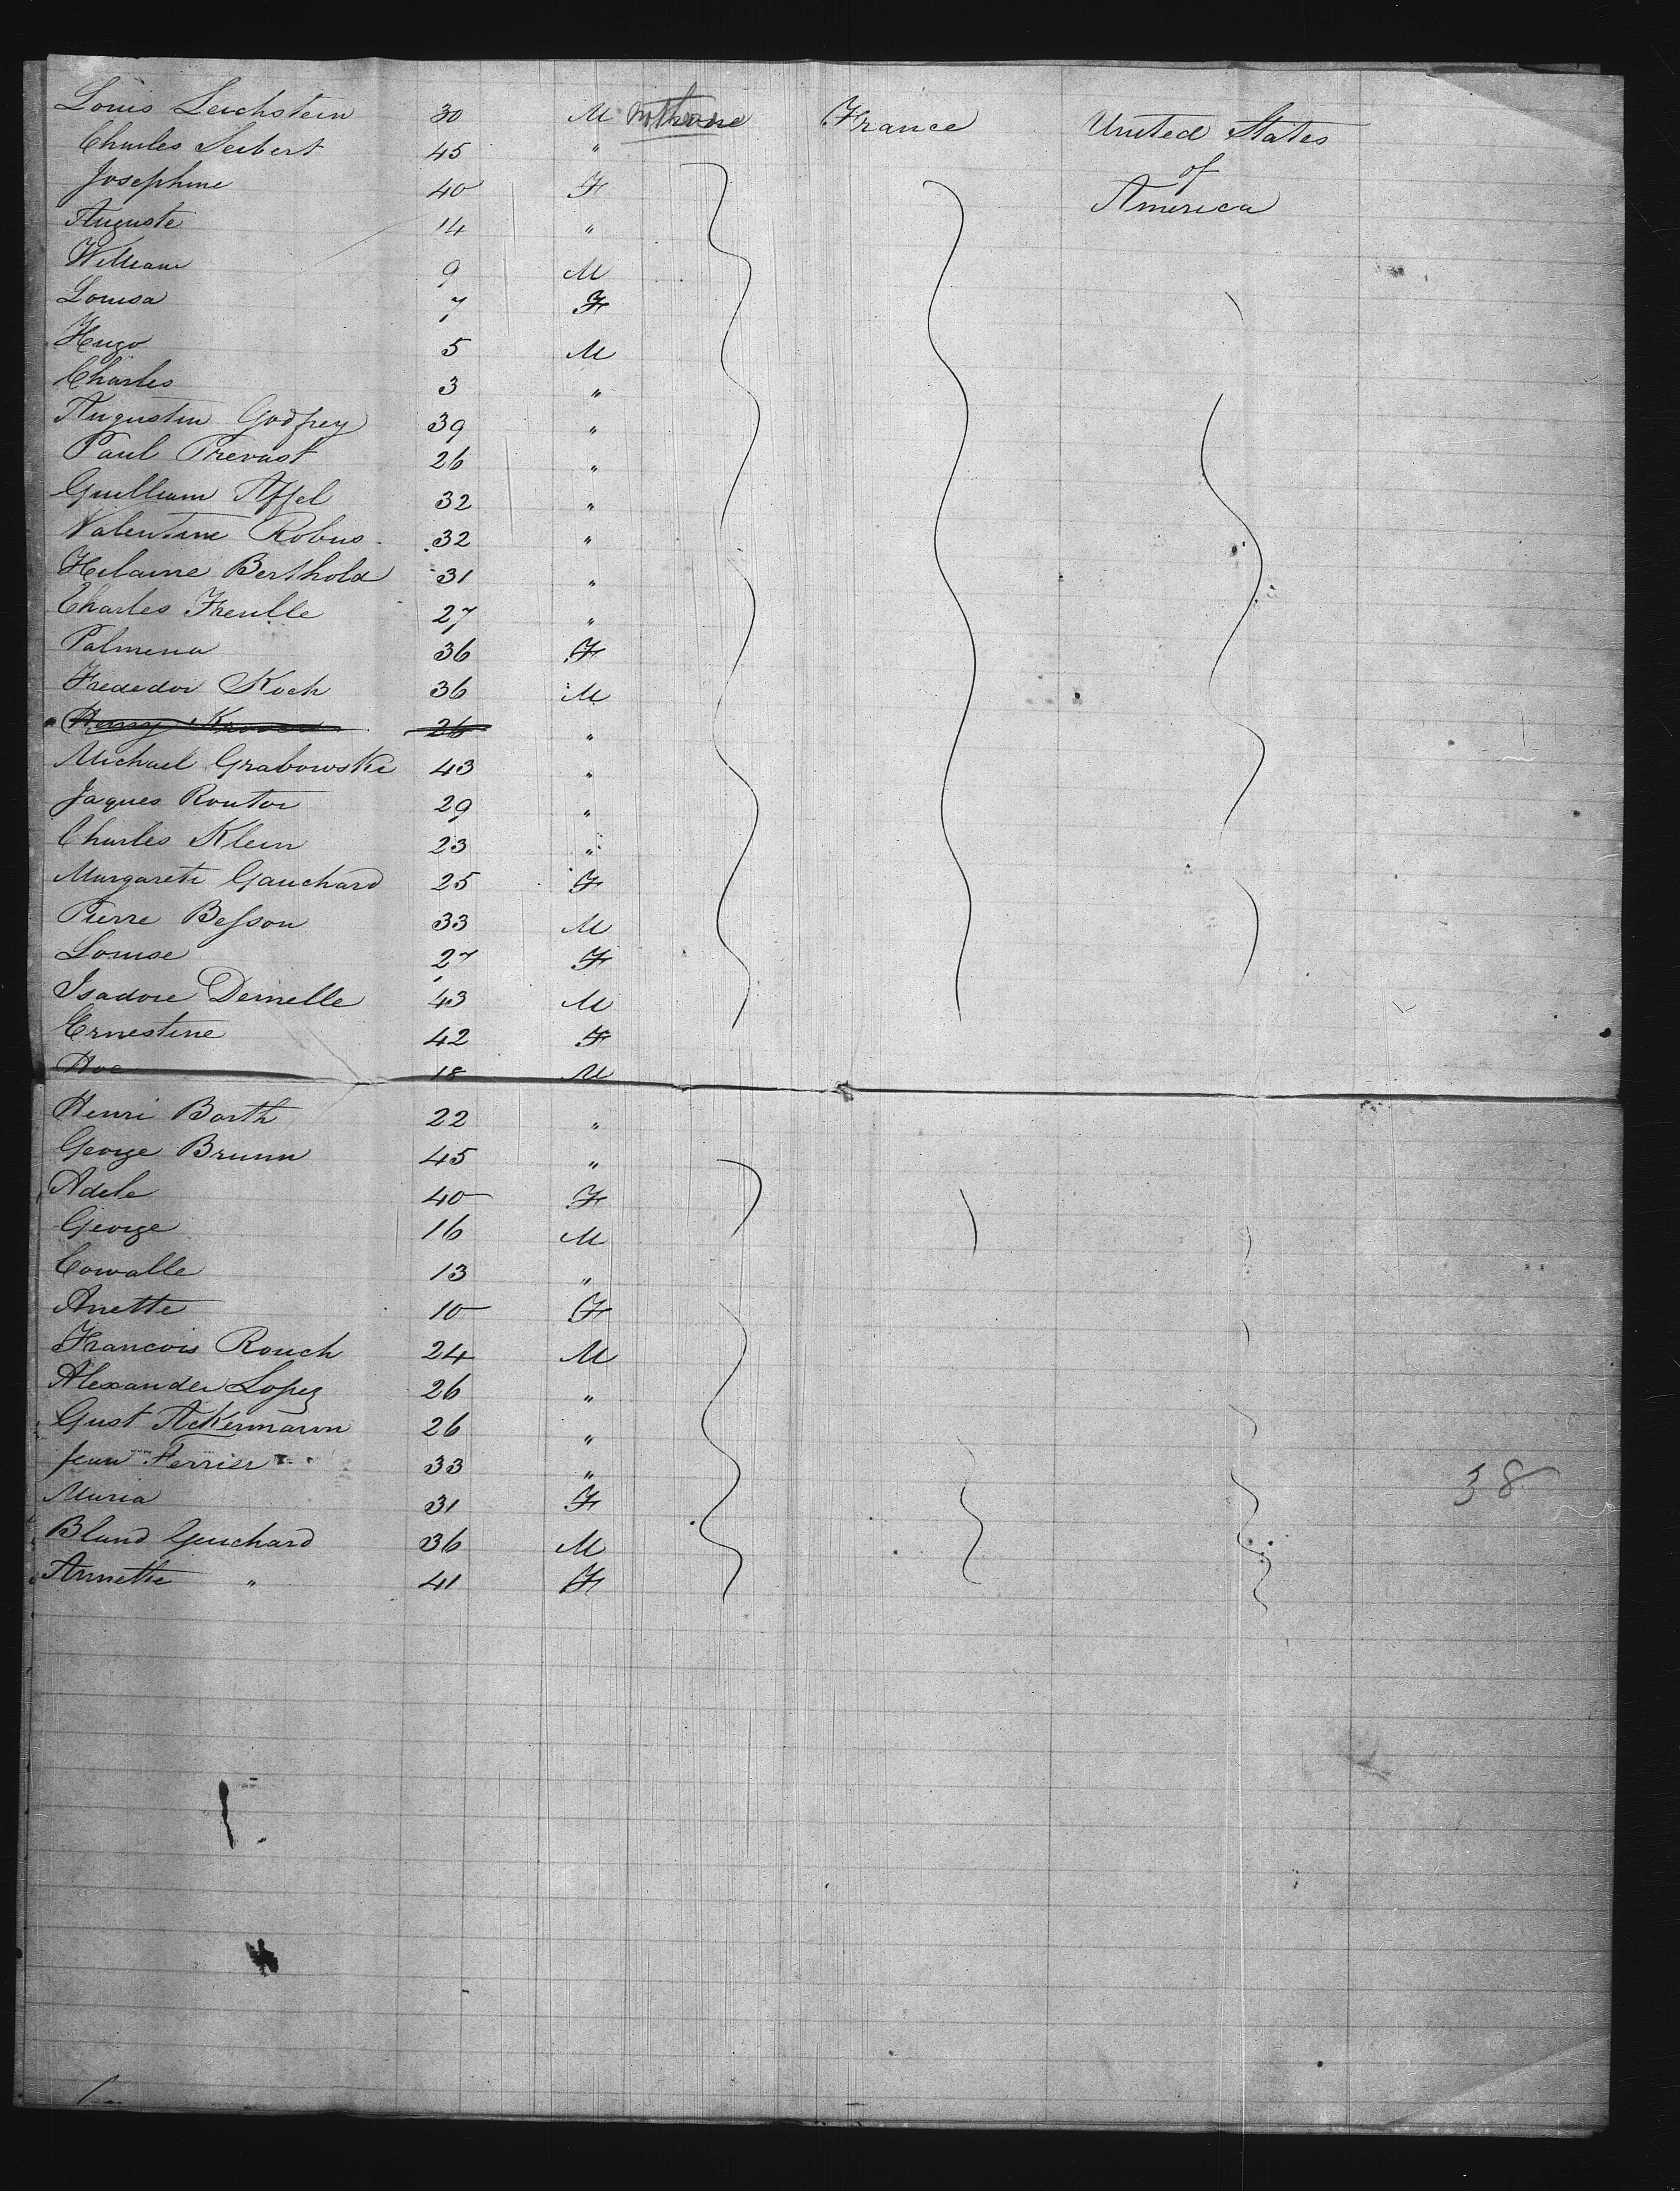 Louis Leichstein 30 M France United States
Charles Seibert 45 " of
Josephine 40 F America
Auguste 14 "
William 9 M
Louisa 7 F
Hugo 5 M
Charles 3 "
Augustin Godfrey 39 "
Paul Prevost 26 "
Guilliam Affel 32 "
Valentine Robus 32 "
Helaine Berthold 31 "
Charles Freulle 27 "
Palmena 36 F
Frededor Koch 36 M
Henry 26 "
Michael Grabowski 43 "
Jaques Routor 29 "
Charles Klein 23 "
Margarete Gauchard 25 F
Pierre Besson 33 M
Louise 27 F
Isadore Dernelle 43 M
Ernestine 42 F
18 M
Henri Barth 22 "
George Brunn 45 "
Adele 40 F
George 16 M
Cowalle 13 "
Anette 10 F
Francois Rouch 24 M
Alexander Lopez 26 "
Gust Ackermann 26 "
Jean Ferrier 33 "
Maria 31 F 38
Bland Guichard 36 M
Annette " 41 F